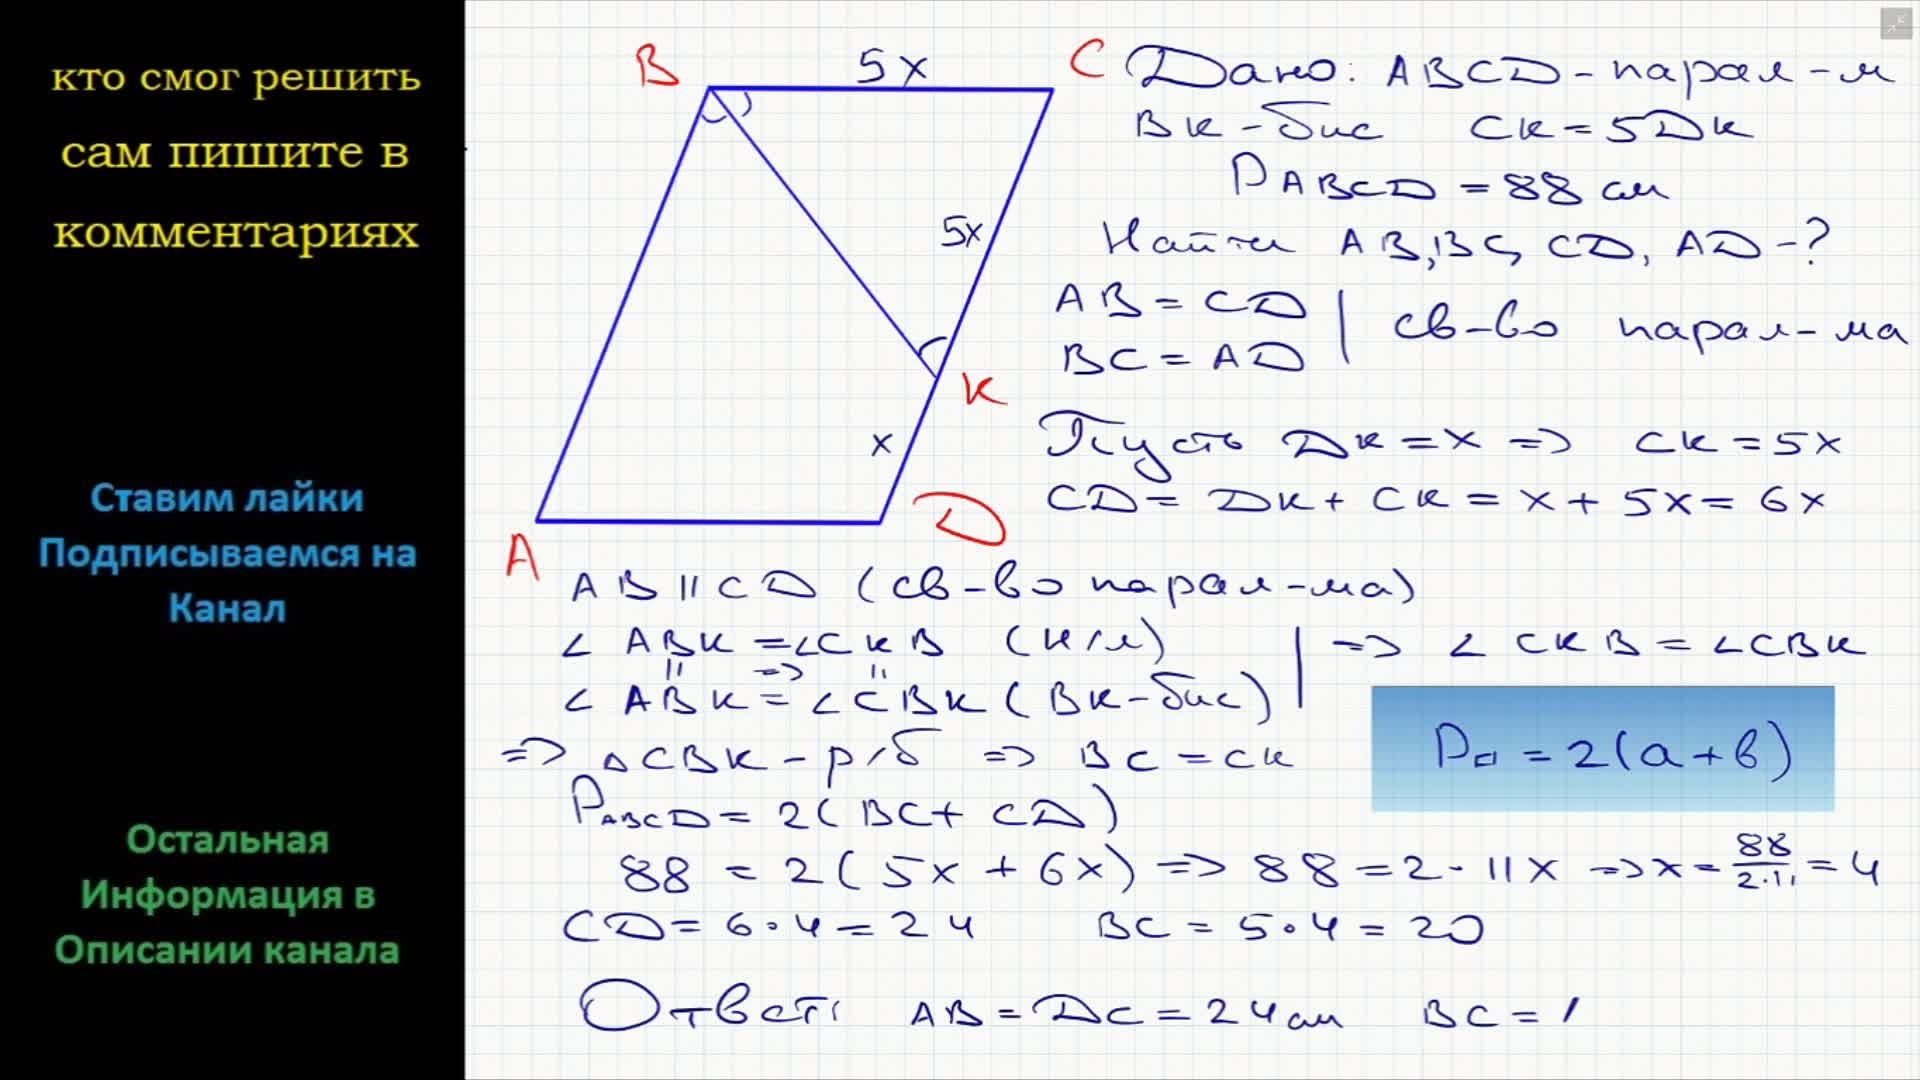 кто смог решить
сам пишите в
комментариях
Ставим лайки
Подписываемся на
Канал
Остальная
Информация в
Описании канала
B
5x
C
5x
K
x
A
D
Дано: ABCD - парал-м
BK - бис CK = 5DK
P ABCD = 88 см
Найти AB, BC, CD, AD - ?
AB = CD | св-во парал-ма
BC = AD
Пусть DK = x => CK = 5x
CD = DK + CK = x + 5x = 6x
AB || CD (св-во парал-ма)
∠ABK = ∠CKB (н/л) | => ∠CKB = ∠CBK
|| => ||
∠ABK = ∠CBK (BK - бис)
=> △CBK - р/б => BC = CK
P▱ = 2(a + b)
P ABCD = 2(BC + CD)
88 = 2(5x + 6x) => 88 = 2·11x => x = 88/2·11 = 4
CD = 6·4 = 24 BC = 5·4 = 20
Ответ: AB = DC = 24 см BC =